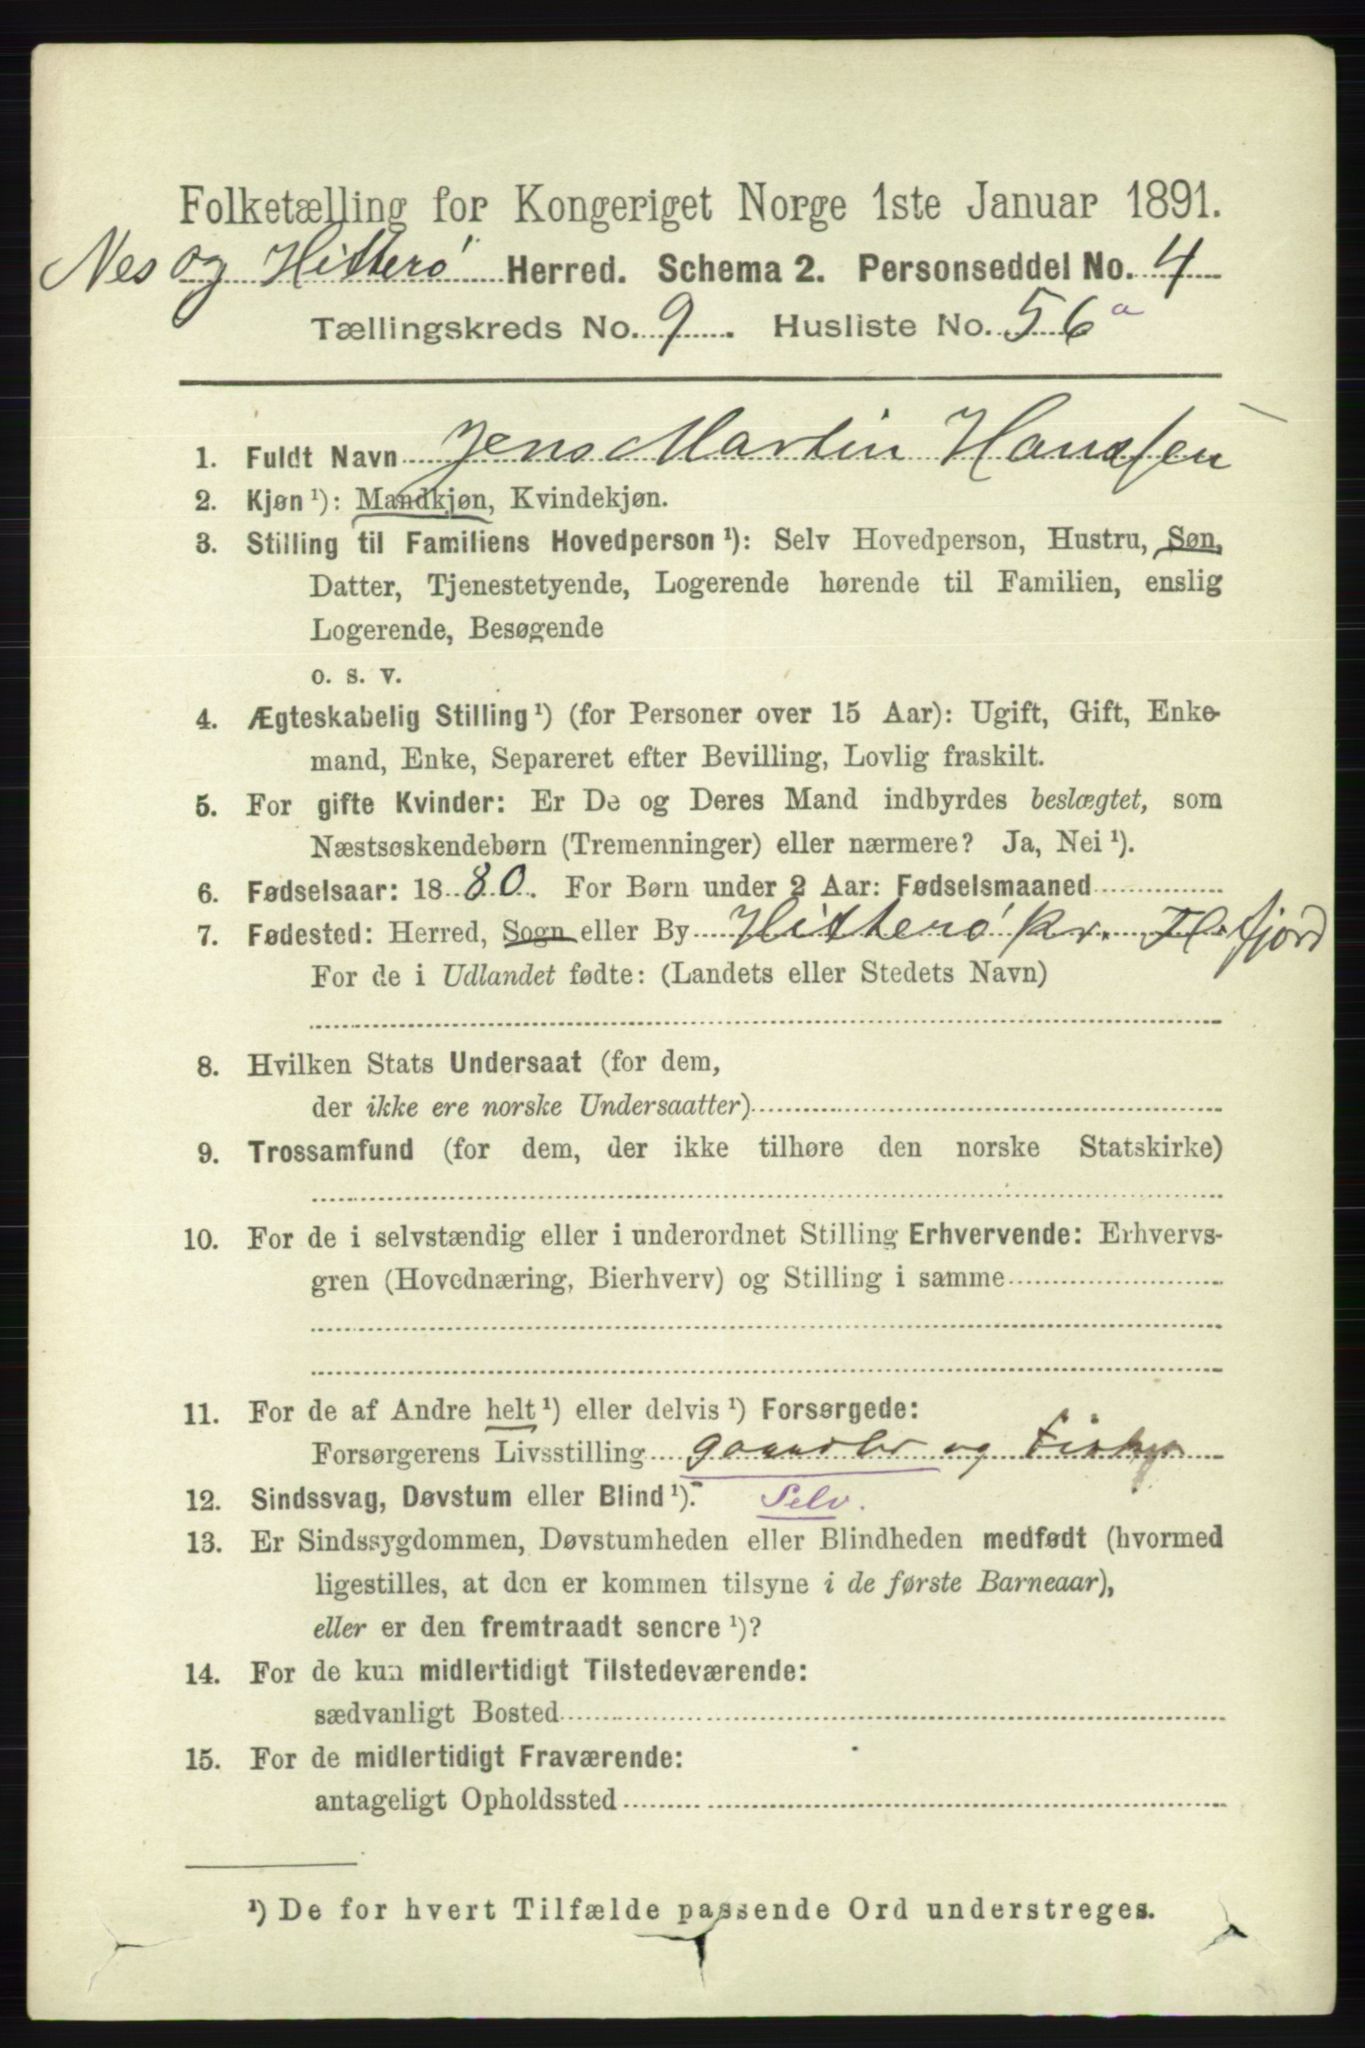 Folketælling for Kongeriget Norge 1ste Januar 1891.
Nes og Hitterö Herred. Schema 2. Personseddel No. 4
Tællingskreds No. 9. Husliste No. 56 a
1. Fuldt Navn Jens Martin Hanssen
2. Kjøn ¹): Mandkjøn, Kvindekjøn.
3. Stilling til Familiens Hovedperson ¹): Selv Hovedperson, Hustru, Søn,
Datter, Tjenestetyende, Logerende hørende til Familien, enslig
Logerende, Besøgende
o. s. v.
4. Ægteskabelig Stilling ¹) (for Personer over 15 Aar): Ugift, Gift, Enke-
mand, Enke, Separeret efter Bevilling, Lovlig fraskilt.
5. For gifte Kvinder: Er De og Deres Mand indbyrdes beslægtet, som
Næstsøskendebørn (Tremenninger) eller nærmere? Ja, Nei ¹).
6. Fødselsaar: 1880. For Børn under 2 Aar: Fødselsmaaned
7. Fødested: Herred, Sogn eller By Hitterö pr. Fl.fjord
For de i Udlandet fødte: (Landets eller Stedets Navn)
8. Hvilken Stats Undersaat (for dem,
der ikke ere norske Undersaatter)
9. Trossamfund (for dem, der ikke tilhøre den norske Statskirke)
10. For de i selvstændig eller i underordnet Stilling Erhvervende: Erhvervs-
gren (Hovednæring, Bierhverv) og Stilling i samme
11. For de af Andre helt ¹) eller delvis ¹) Forsørgede:
Forsørgerens Livsstilling og Fisker
12. Sindssvag, Døvstum eller Blind ¹). Selv.
13. Er Sindssygdommen, Døvstumheden eller Blindheden medfødt (hvormed
ligestilles, at den er kommen tilsyne i de første Barneaar),
eller er den fremtraadt senere ¹)?
14. For de kun midlertidigt Tilstedeværende:
sædvanligt Bosted
15. For de midlertidigt Fraværende:
antageligt Opholdssted
¹) De for hvert Tilfælde passende Ord understreges.